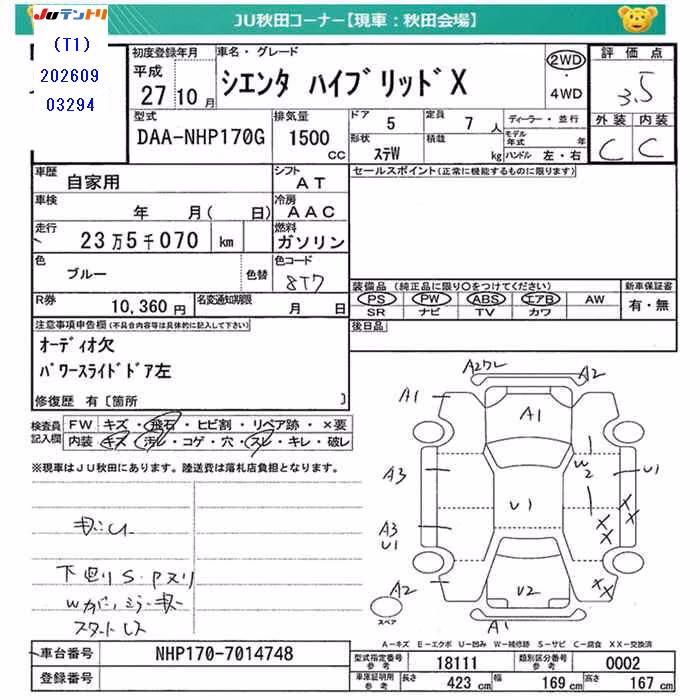 JUテントリ
JU秋田コーナー【現車：秋田会場】
(T1)
202609
03294
初度登録年月
平成
27年10月
車名・グレード
シエンタ ハイブリッドX
2WD
4WD
評価点
3.5
型式
DAA-NHP170G
排気量
1500
CC
ドア 5
定員 7人
形状 ステW
積載 kg
ディーラー・並行
モデル年式 年
ハンドル 左・右
外装 内装
C C
車歴 自家用
シフト AT
セールスポイント(正常に機能するものに限ります)
車検 年 月( 日)
冷房 AAC
走行 23万5千070 km
燃料 ガソリン
色 ブルー 色替
色コード 8T7
R券 10,360円
名変通知期限 月 日
装備品 (純正品に限り○をつけてください)
新車保証書
PS PW ABS エアB AW
SR ナビ TV カワ
有・無
後日品
注意事項申告欄(不具合内容等は具体的に記入して下さい)
オーディオ欠
パワースライドドア左
修復歴 有〔箇所 〕
検査員記入欄
FW キズ・飛石・ヒビ割・リペア跡・×要
内装 キズ・汚レ・コゲ・穴・スレ・キレ・破レ
※現車はJU秋田にあります。陸送費は落札店負担となります。
下廻りS.Pヌリ
A2 A2
A1 A1
W2
U1
A3 U1
A3
U1
XX
XX
A2 U2
A1
スペア
A－キズ E－エクボ U－凹み W－補修跡 S－サビ C－腐食 XX－交換済
車台番号 NHP170-7014748
型式指定番号 18111
類別区分番号 0002
登録番号
車庫証明用参考 長さ 423 cm 幅 169 cm 高さ 167 cm